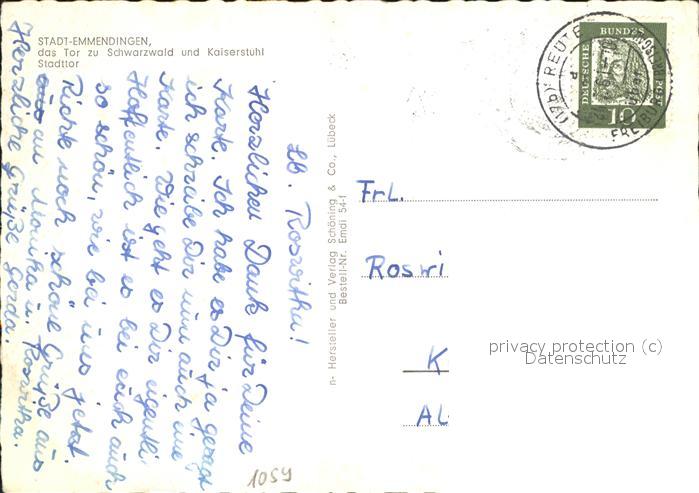 STADT-EMMENDINGEN,
das Tor zu Schwarzwald und Kaiserstuhl
Stadttor
Lb. Roswitha!
Herzlichen Dank für Deine
Karte. Ich habe es Dir ja gesagt
ich schreibe Dir nun auch eine
Karte. Wie geht es Dir eigentli
Hoffentlich ist es bei euch auch
so schön, wie bei uns jetzt.
Richte noch schöne Grüße aus
an Monika u. Roswitha.
Herzliche Grüße Gerda.
n- Hersteller und Verlag Schöning & Co., Lübeck
Bestell-Nr. Emdi 54-f
DEUTSCHE BUNDESPOST
10
(17b) REUTE
FREIBURG
Frl.
Roswi
K
AL
privacy protection (c)
Datenschutz
1059